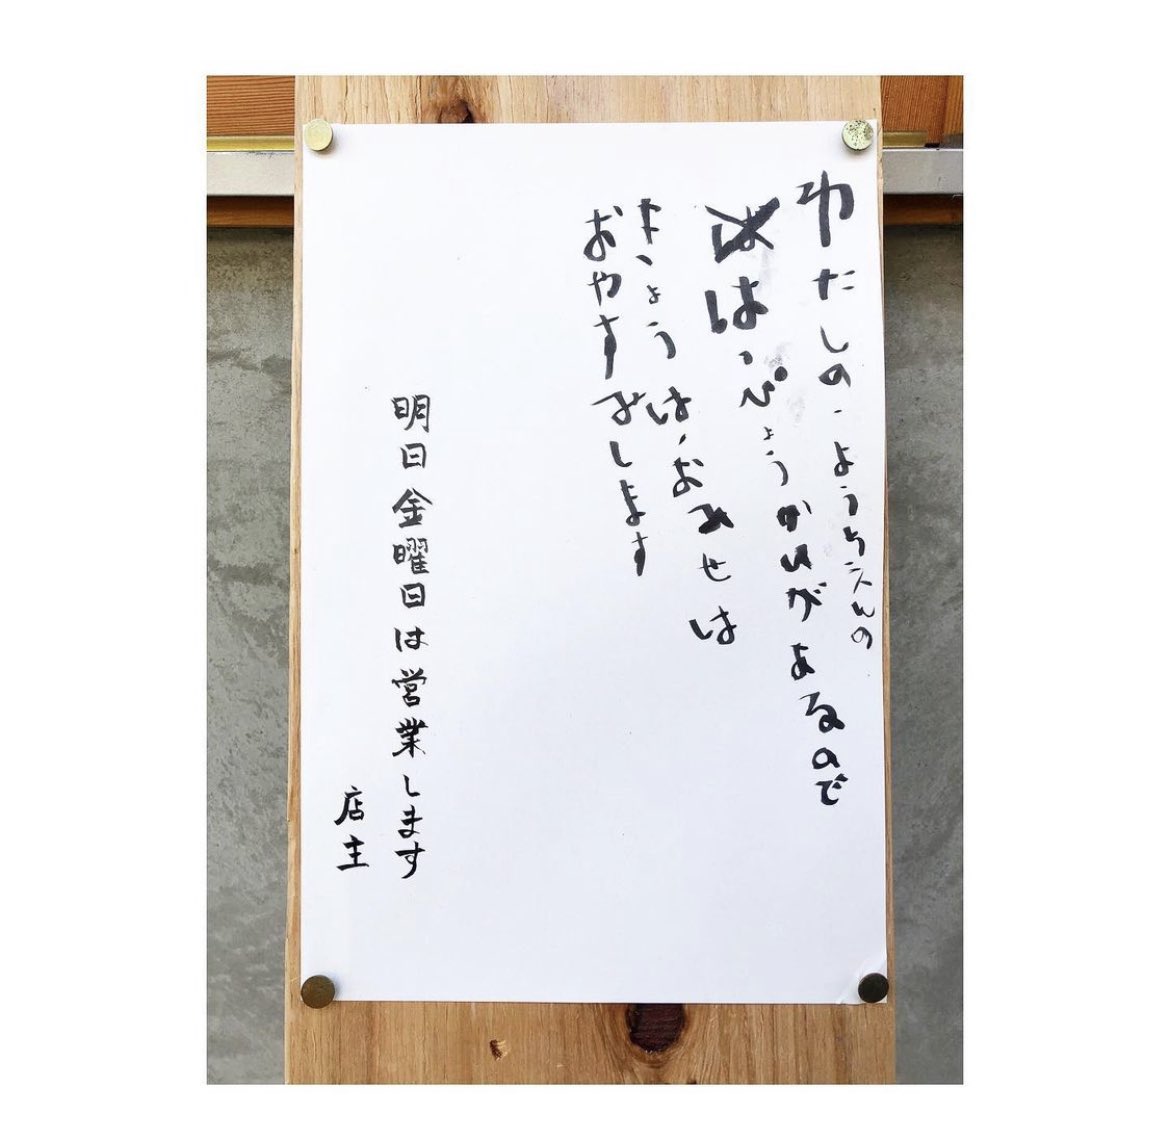 わたしの、ようちえんの
はっぴょうかいがよるので
きょうは、おみせは
おやすみします
明日金曜日は営業します
店主